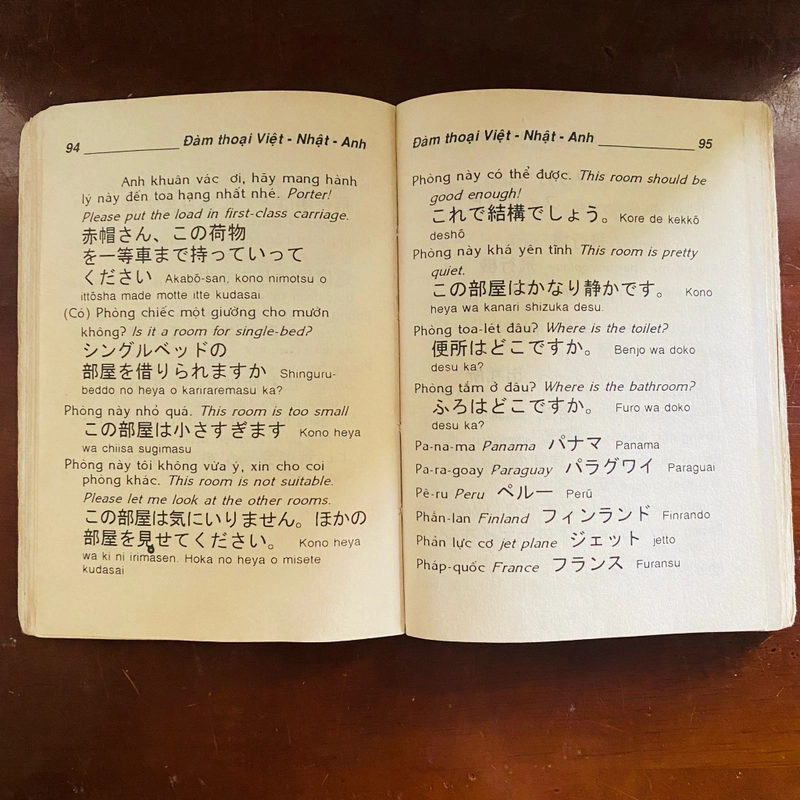 94 Đàm thoại Việt - Nhật - Anh
Anh khuân vác ơi, hãy mang hành
lý này đến toa hạng nhất nhé. Porter!
Please put the load in first-class carriage.
赤帽さん、この荷物
を一等車まで持っていって
ください Akabō-san, kono nimotsu o
ittōsha made motte itte kudasai
(Có) Phòng chiếc một giường cho mướn
không? Is it a room for single-bed?
シングルベッドの
部屋を借りられますか Shinguru-
beddo no heya o karıraremasu ka?
Phòng này nhỏ quá. This room is too small
この部屋は小さすぎます Kono heya
wa chiisa sugimasu
Phòng này tôi không vừa ý, xin cho coi
phòng khác. This room is not suitable.
Please let me look at the other rooms.
この部屋は気にいりません。ほかの
部屋を見せてください。 Kono heya
wa ki ni irimasen. Hoka no heya o misete
kudasai
Đàm thoại Việt - Nhật - Anh 95
Phòng này có thể được. This room should be
good enough!
これで結構でしょう。 Kore de kekkō
deshō
Phòng này khá yên tĩnh This room is pretty
quiet.
この部屋はかなり静かです。 Kono
heya wa kanari shizuka desu.
Phòng toa-lét đâu? Where is the toilet?
便所はどこですか。 Benjo wa doko
desu ka?
Phòng tắm ở đâu? Where is the bathroom?
ふろはどこですか。 Furo wa doko
desu ka?
Pa-na-ma Panama パナマ Panama
Pa-ra-goay Paraguay パラグワイ Paraguai
Pê-ru Peru ペルー Perū
Phần-lan Finland フィンランド Finrando
Phản lực cơ jet plane ジェット jetto
Pháp-quốc France フランス Furansu